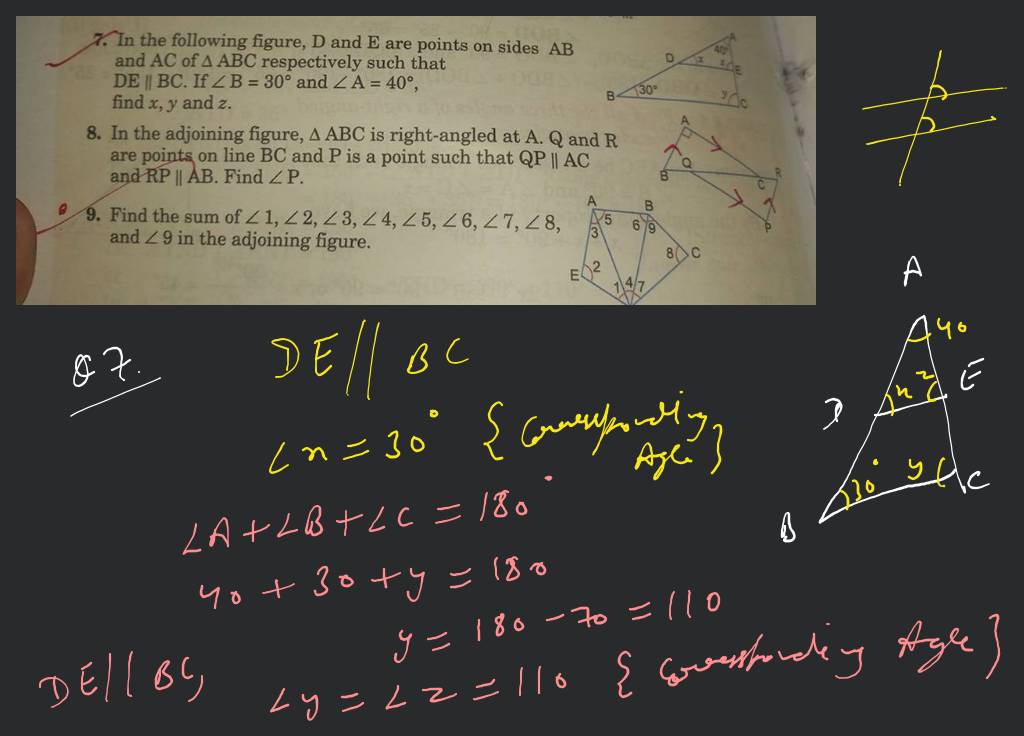 7. In the following figure, D and E are points on sides AB
and AC of Δ ABC respectively such that
DE || BC. If ∠B = 30° and ∠A = 40°,
find x, y and z.
A
40°
D
x
z
E
B
30°
y
C
8. In the adjoining figure, Δ ABC is right-angled at A. Q and R
are points on line BC and P is a point such that QP || AC
and RP || AB. Find ∠P.
A
Q
B
C
R
P
9. Find the sum of ∠1, ∠2, ∠3, ∠4, ∠5, ∠6, ∠7, ∠8,
and ∠9 in the adjoining figure.
A
B
5
3
6
9
8
C
E
2
1
4
7
Q7.
DE || BC
∠x = 30° { Corresponding
Agle }
∠A + ∠B + ∠C = 180°
40 + 30 + y = 180
y = 180 - 70 = 110
DE || BC,
∠y = ∠z = 110 { Corresponding Agle }
A
40
D
x
z
E
B
30°
y
C